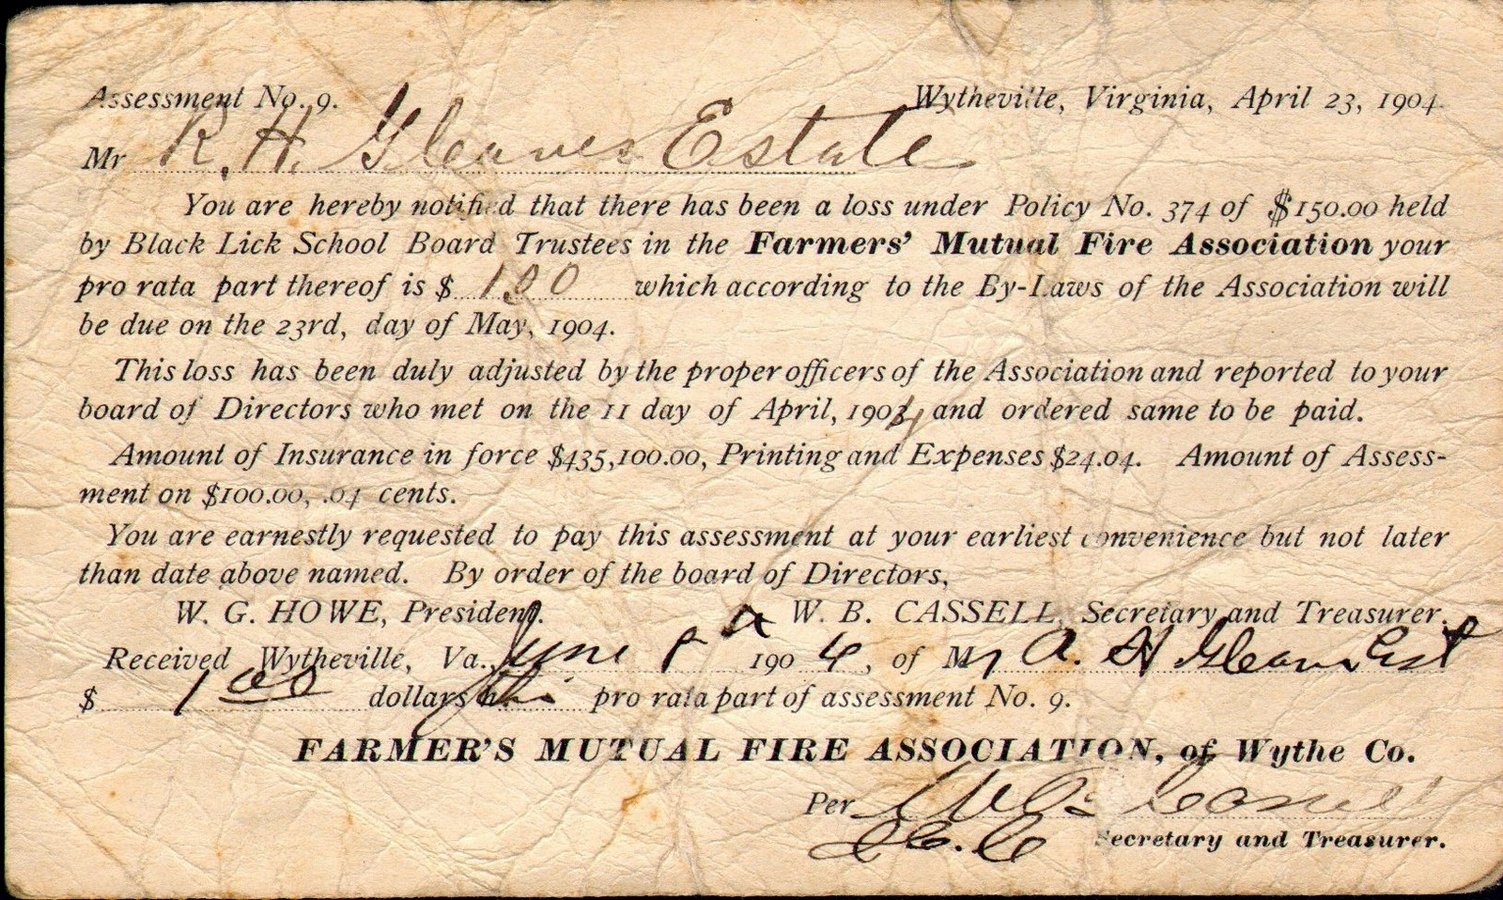 Assessment No. 9. Wytheville, Virginia, April 23, 1904.
Mr R. H. Gleaves Estate
You are hereby notified that there has been a loss under Policy No. 374 of $150.00 held
by Black Lick School Board Trustees in the Farmers' Mutual Fire Association your
pro rata part thereof is $ 1.00 which according to the By-Laws of the Association will
be due on the 23rd, day of May, 1904.
This loss has been duly adjusted by the proper officers of the Association and reported to your
board of Directors who met on the 11 day of April, 1904, and ordered same to be paid.
Amount of Insurance in force $435,100.00, Printing and Expenses $24.04. Amount of Assess-
ment on $100.00, .04 cents.
You are earnestly requested to pay this assessment at your earliest convenience but not later
than date above named. By order of the board of Directors,
W. G. HOWE, President. W. B. CASSELL, Secretary and Treasurer.
Received Wytheville, Va., June 1904, of Mr H Gleaves Est
$ 1 00 dollars this pro rata part of assessment No. 9.
FARMER'S MUTUAL FIRE ASSOCIATION, of Wythe Co.
Per W B Cassell
Secretary and Treasurer.